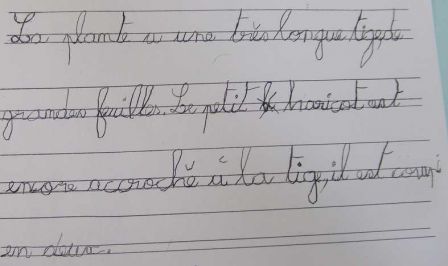 La plante a une très longue tige, de
grandes feuilles. Le petit haricot est
encore accroché à la tig, il est coupé
en deux.